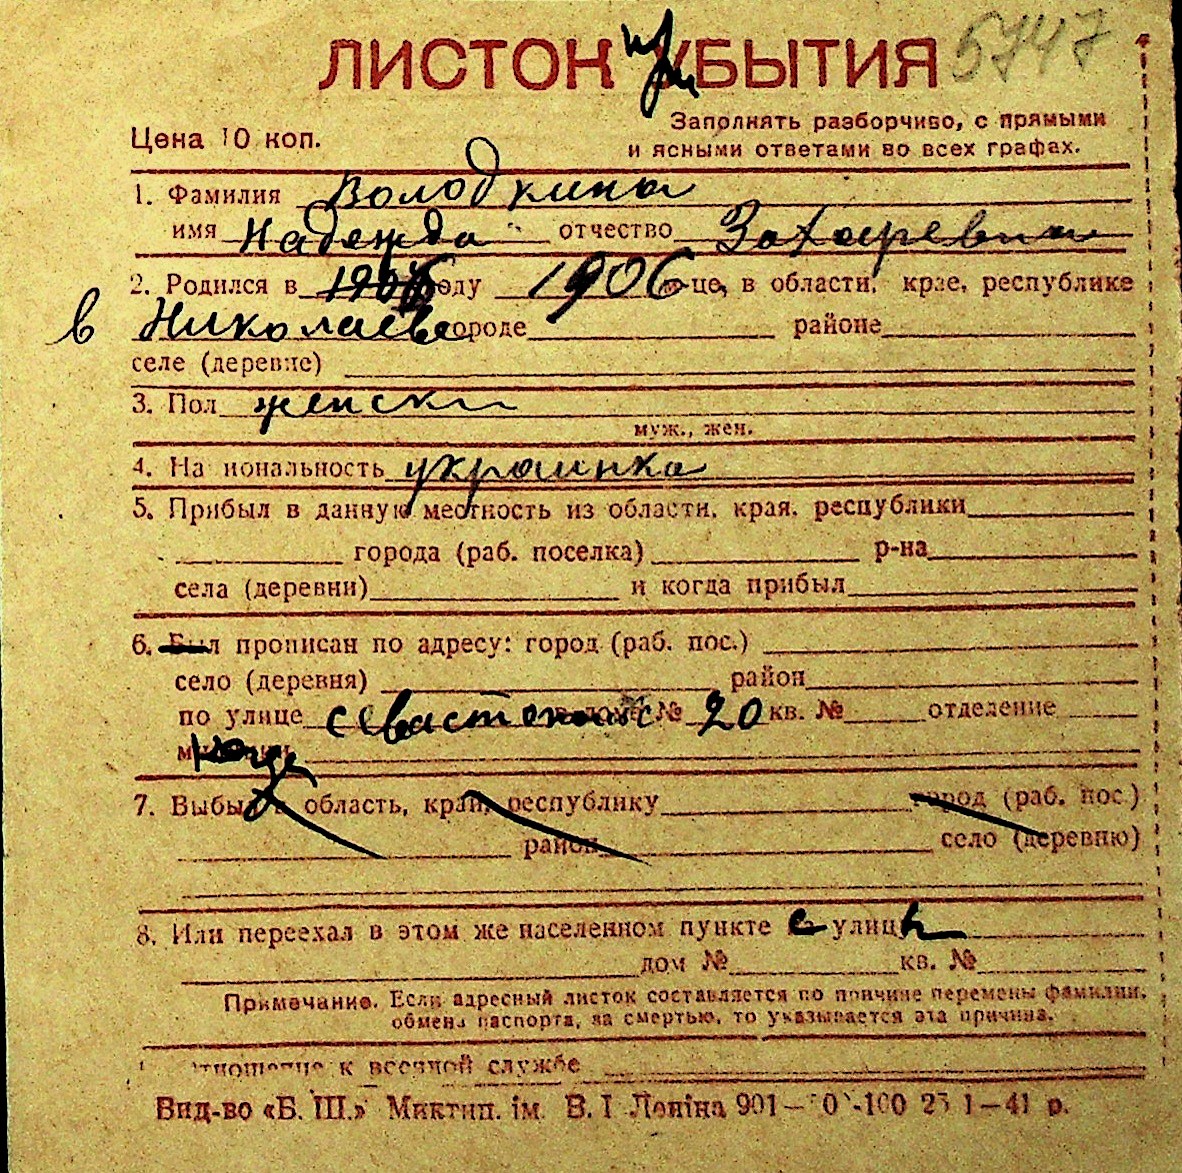 ЛИСТОК прибытия 5747
Цена 10 коп.
Заполнять разборчиво, с прямыми
и ясными ответами во всех графах.
1. Фамилия Володкина
имя Надежда отчество Захаревна
2. Родился в 1906 году 1906 м-це, в области, крае, республике
в Николаеве городе районе
селе (деревне)
3. Пол женски
муж., жен.
4. Национальность украинка
5. Прибыл в данную местность из области, края, республики
города (раб. поселка) р-на
села (деревни) и когда прибыл
6. Был прописан по адресу: город (раб. пос.)
село (деревня) район
по улице № 20 кв. № отделение
7. Выбыл в область, край, республику город (раб. пос.)
район село (деревню)
8. Или переехал в этом же населенном пункте с улицы
дом № кв. №
Примечание. Если адресный листок составляется по причине перемены фамилии,
обмена паспорта, за смертью, то указывается эта причина.
отношение к военной службе
Вид-во «Б. Ш.» Миктип. ім. В. І Леніна 901— 1—41 р.